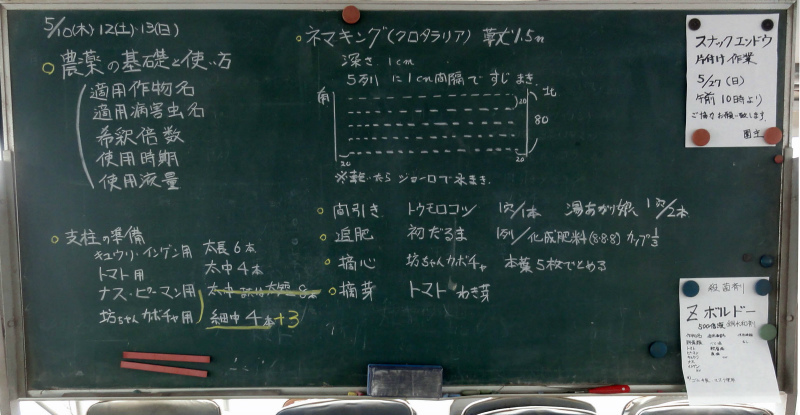 5/10(木)・12(土)・13(日)
○農薬の基礎と使い方
適用作物名
適用病害虫名
希釈倍数
使用時期
使用液量
○支柱の準備
キュウリ・インゲン用 太長6本
トマト用 太中4本
ナス・ピーマン用 太中 又は 太短 8本
坊ちゃんカボチャ用 細中4本+3
○ネマキング(クロタラリア) 草丈1.5m
深さ 1cm
5列に1cm間隔で すじまき
南 北
20 80
20 20
※乾いたらジョーロで水まき
○間引き トウモロコシ 1穴/1本 湯あがり娘 1穴/2本
○追肥 初だるま 1列/化成肥料(8・8・8) カップ1/3
○摘心 坊ちゃんカボチャ 本葉5枚でとめる
○摘芽 トマト わき芽
スナックエンドウ
片付け作業
5/27(日)
午前10時より
ご協力お願い致します
園主
殺菌剤
Zボルドー
500倍液